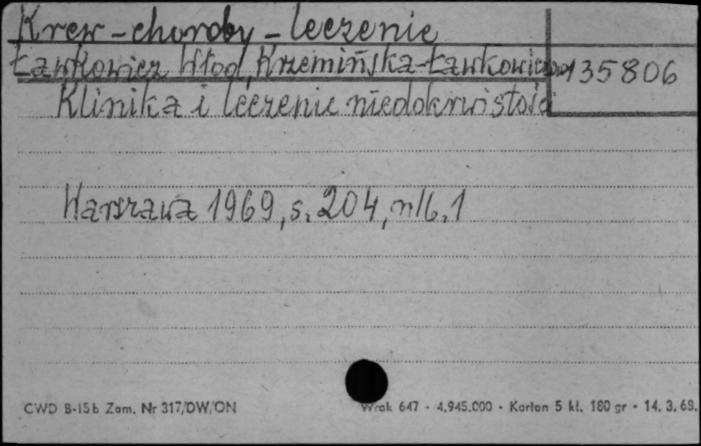 Krew - choroby - leczenie
Ławkowicz Włod, Krzemińska-Ławkowiczowa
135806
Klinika i leczenie niedokrwistości
Warszawa 1969, s. 204, nlb. 1
CWD B-15b Zam. Nr 317/DW/ON
Wrak 647 - 4.945.000 - Karton 5 kl. 180 gr - 14. 3. 68.